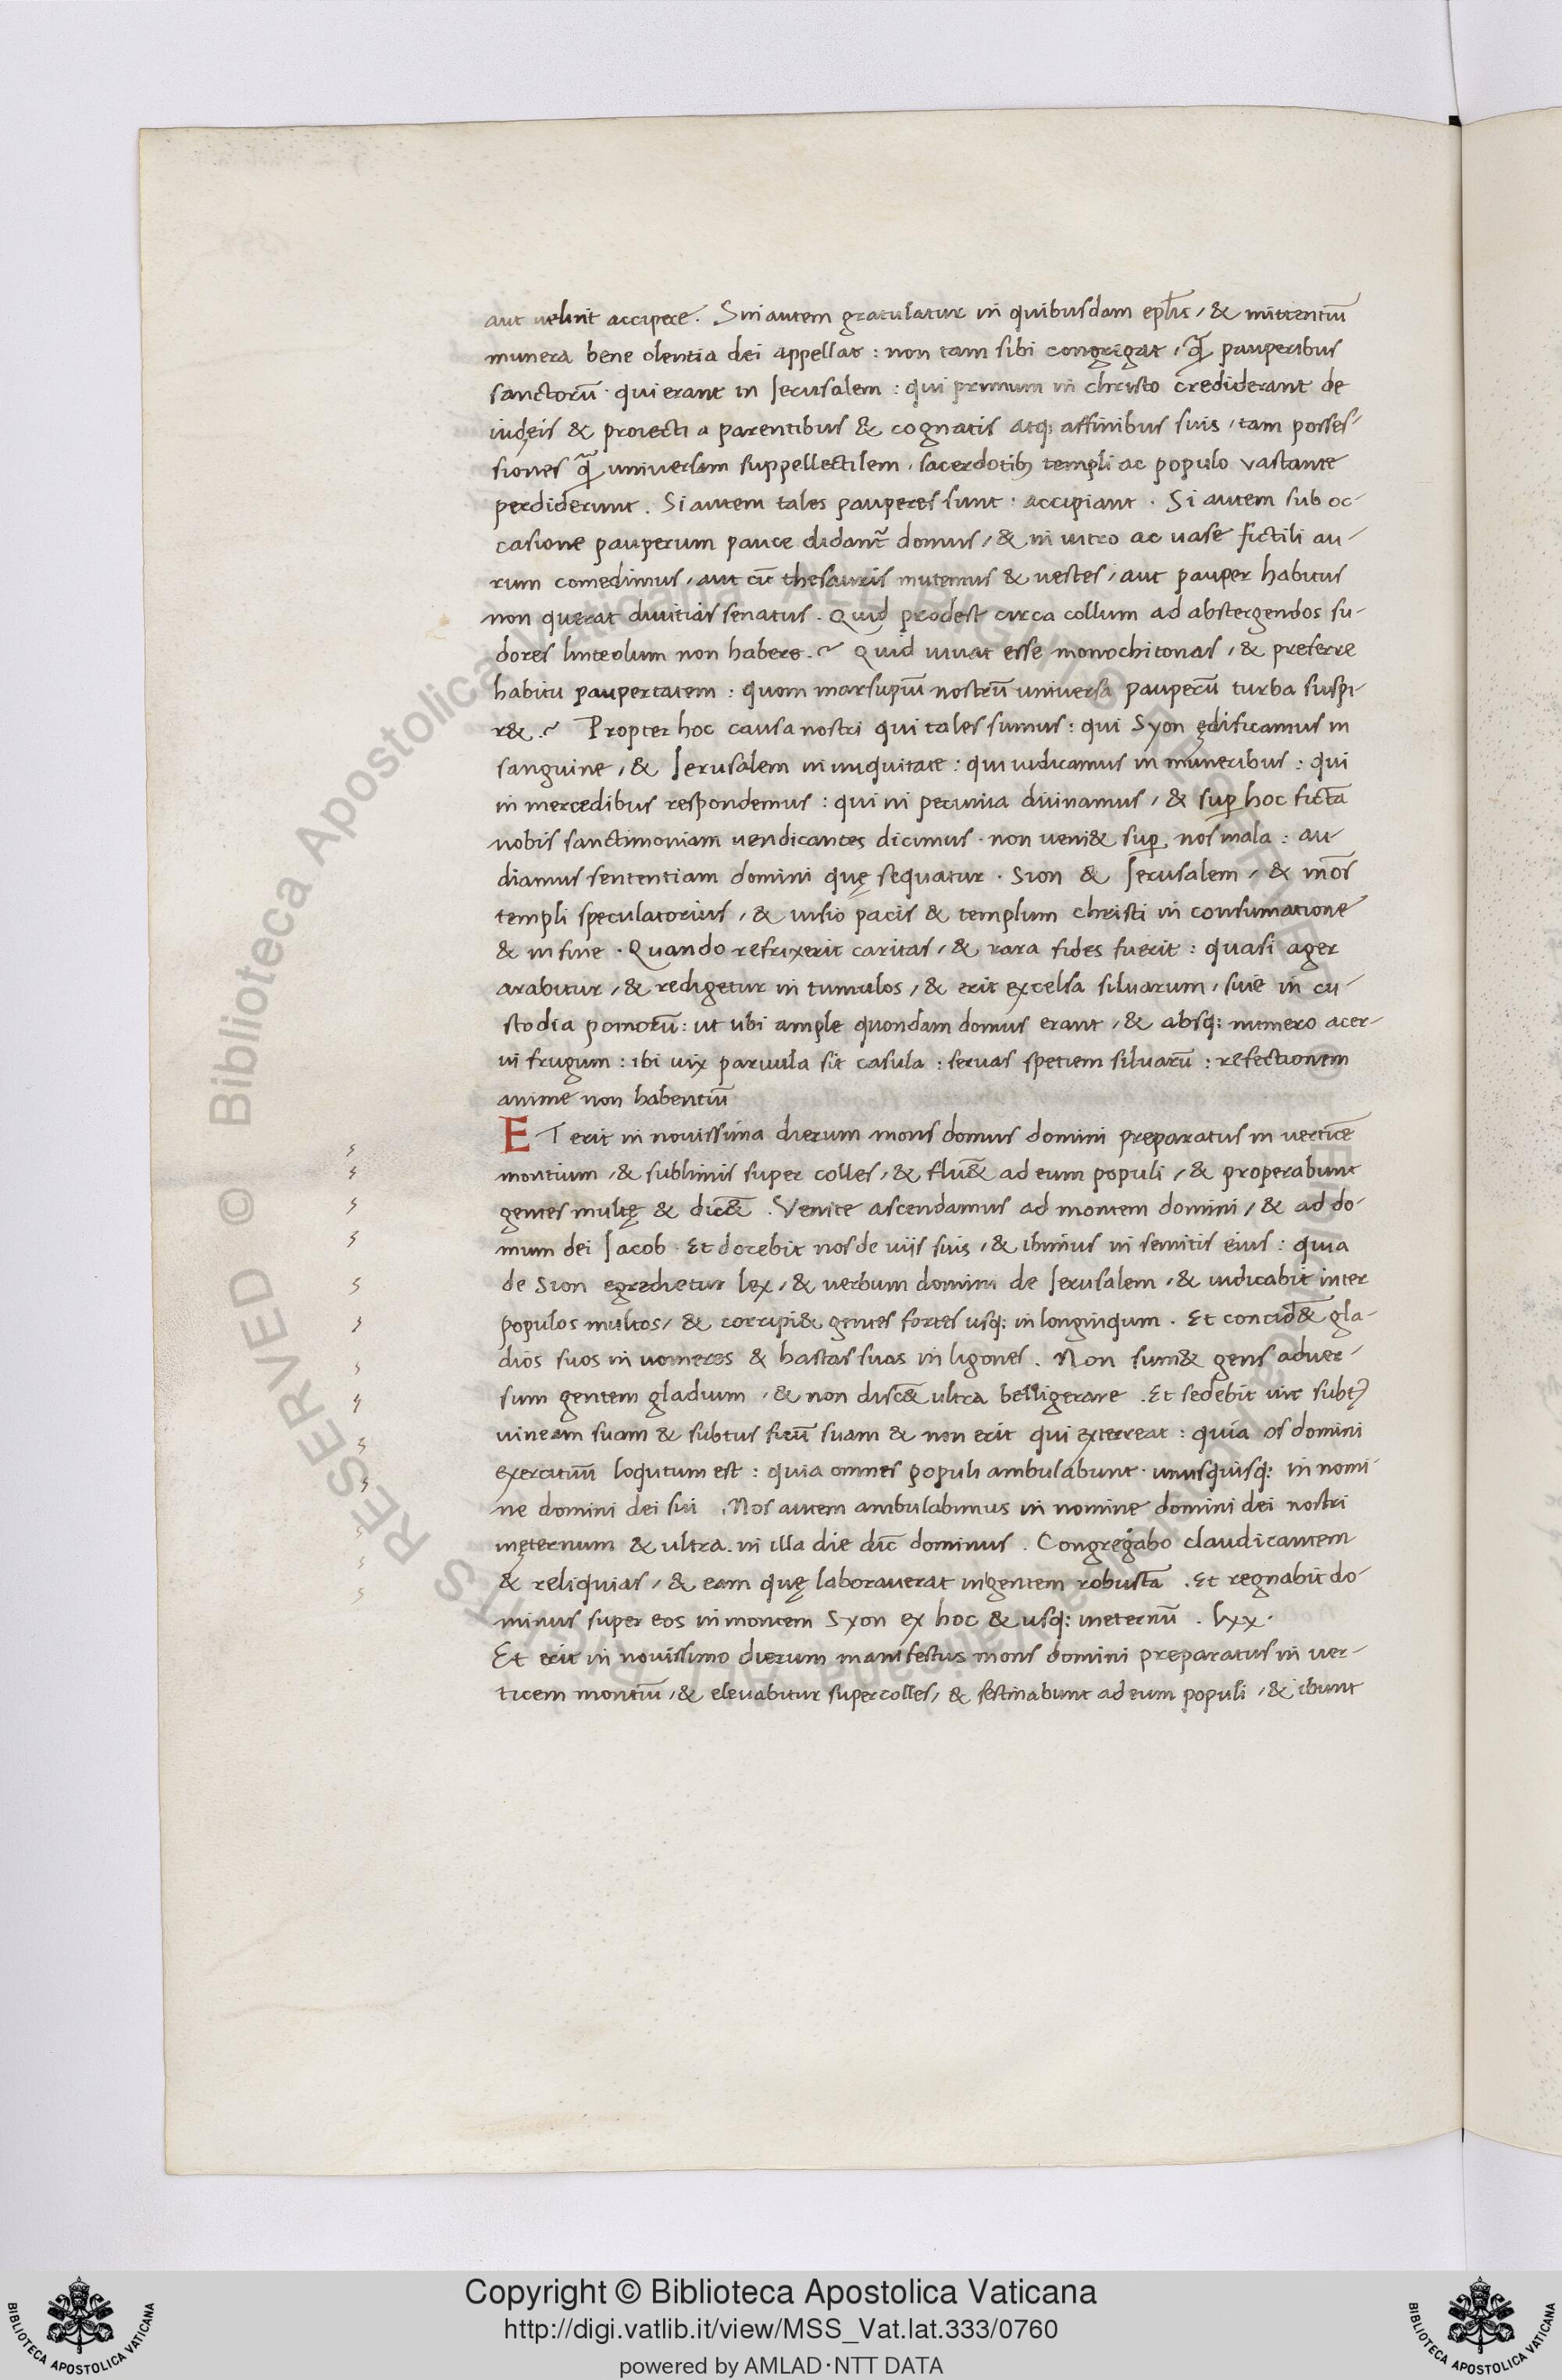 aut uelint accipere. Sin autem gratulatur in quibusdam epl̄is, & mittentiū
munera bene olentia dei appellat: non tam sibi congregat, q̄ pauperibus
sanctorū. qui erant in Jerusalem: qui primum in christo crediderant de
iudęis & proiecti a parentibus & cognatis atq; affinibus suis, tam posses-
siones q̄ universam suppellectilem. sacerdotib; templi ac populo vastante
perdiderunt. Si autem tales pauperes sunt: accipiant. Si autem sub oc-
casione pauperum pauce didant᷑ domus, & in uitro ac uase fictili au-
rum comedimus, aut cū thesauris mutemus & uestes, aut pauper habitus
non querat diuitias senatus. Quid prodest circa collum ad abstergendos su-
dores linteolum non habere.? Quid iuuat esse monochitonas, & preferre
habitu paupertatem: quom marsupiū nostrū universa pauperū turba suspi-
r&.? Propter hoc causa nostri qui tales sumus: qui Syon ędificamus in
sanguine, & Jerusalem in iniquitate: qui iudicamus in muneribus: qui
in mercedibus respondemus: qui in pecunia diuinamus, & sup hoc ficta
nobis sanctimoniam uendicantes dicimus. non ueni& sup nos mala: au
diamus sententiam domini quę sequatur. Sion & Jerusalem, & mōs
templi speculatorius, & uisio pacis & templum christi in consumatione
& in fine. Quando refrixerit caritas, & rara fides fuerit: quasi ager
arabitur, & redigetur in tumulos, & erit excelsa siluarum, siue in cu-
stodia pomorū: ut ubi ample quondam domus erant, & absq; numero acer-
ui frugum: ibi uix paruula sit casula: seruas spetiem siluarū: refectionem
anime non habentiū
ET erit in nouissima dierum mons domus domini preparatus in uertice
montium, & sublimis super colles, & flu&̄ ad eum populi, & properabunt
gentes multę & dic&̄. Venite ascendamus ad montem domini, & ad do-
mum dei Jacob. Et docebit nos de uiis suis, & ibimus in semitis eius: quia
de Sion egredietur lex, & uerbum domini de Jerusalem, & iudicabit inter
populos multos, & corripi& gentes fortes usq; in longinqum. Et concid&̄ gla-
dios suos in uomeres & hastas suas in ligones. Non sum& gens aduer-
sum gentem gladium, & non disc&̄ ultra belligerare. Et sedebit uir subt᷒
uineam suam & subtus ficū suam & non erit qui exterreat: quia os domini
exercituū loqutum est: quia omnes populi ambulabunt. unusquisq; in nomi-
ne domini dei sui. Nos autem ambulabimus in nomine domini dei nostri
inęternum & ultra. in illa die dic̄ dominus. Congregabo claudicantem
& reliquias, & eam quę laborauerat in gentem robusta. Et regnabit do-
minus super eos in montem Syon ex hoc & usq; ineternū. lxx.
Et erit in nouissimo dierum manifestus mons domini preparatus in uer-
ticem montiū, & eleuabitur super colles, & festinabunt ad eum populi, & ibunt
Copyright © Biblioteca Apostolica Vaticana
http://digi.vatlib.it/view/MSS_Vat.lat.333/0760
powered by AMLAD·NTT DATA